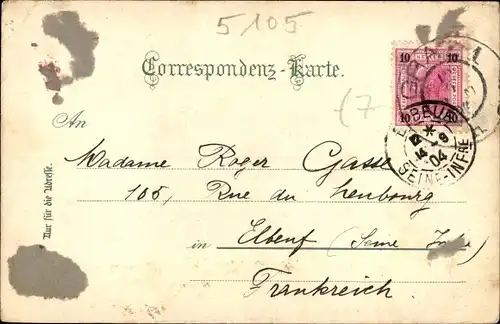 5105
Correspondenz-Karte.
(7
10 10
10 10
ELBEUF
04
SEINE-INFRE
An
Madame Roger Gasse
105, Rue du Neubourg
in Elbeuf (Seine Infre)
Frankreich
Nur für die Adresse.